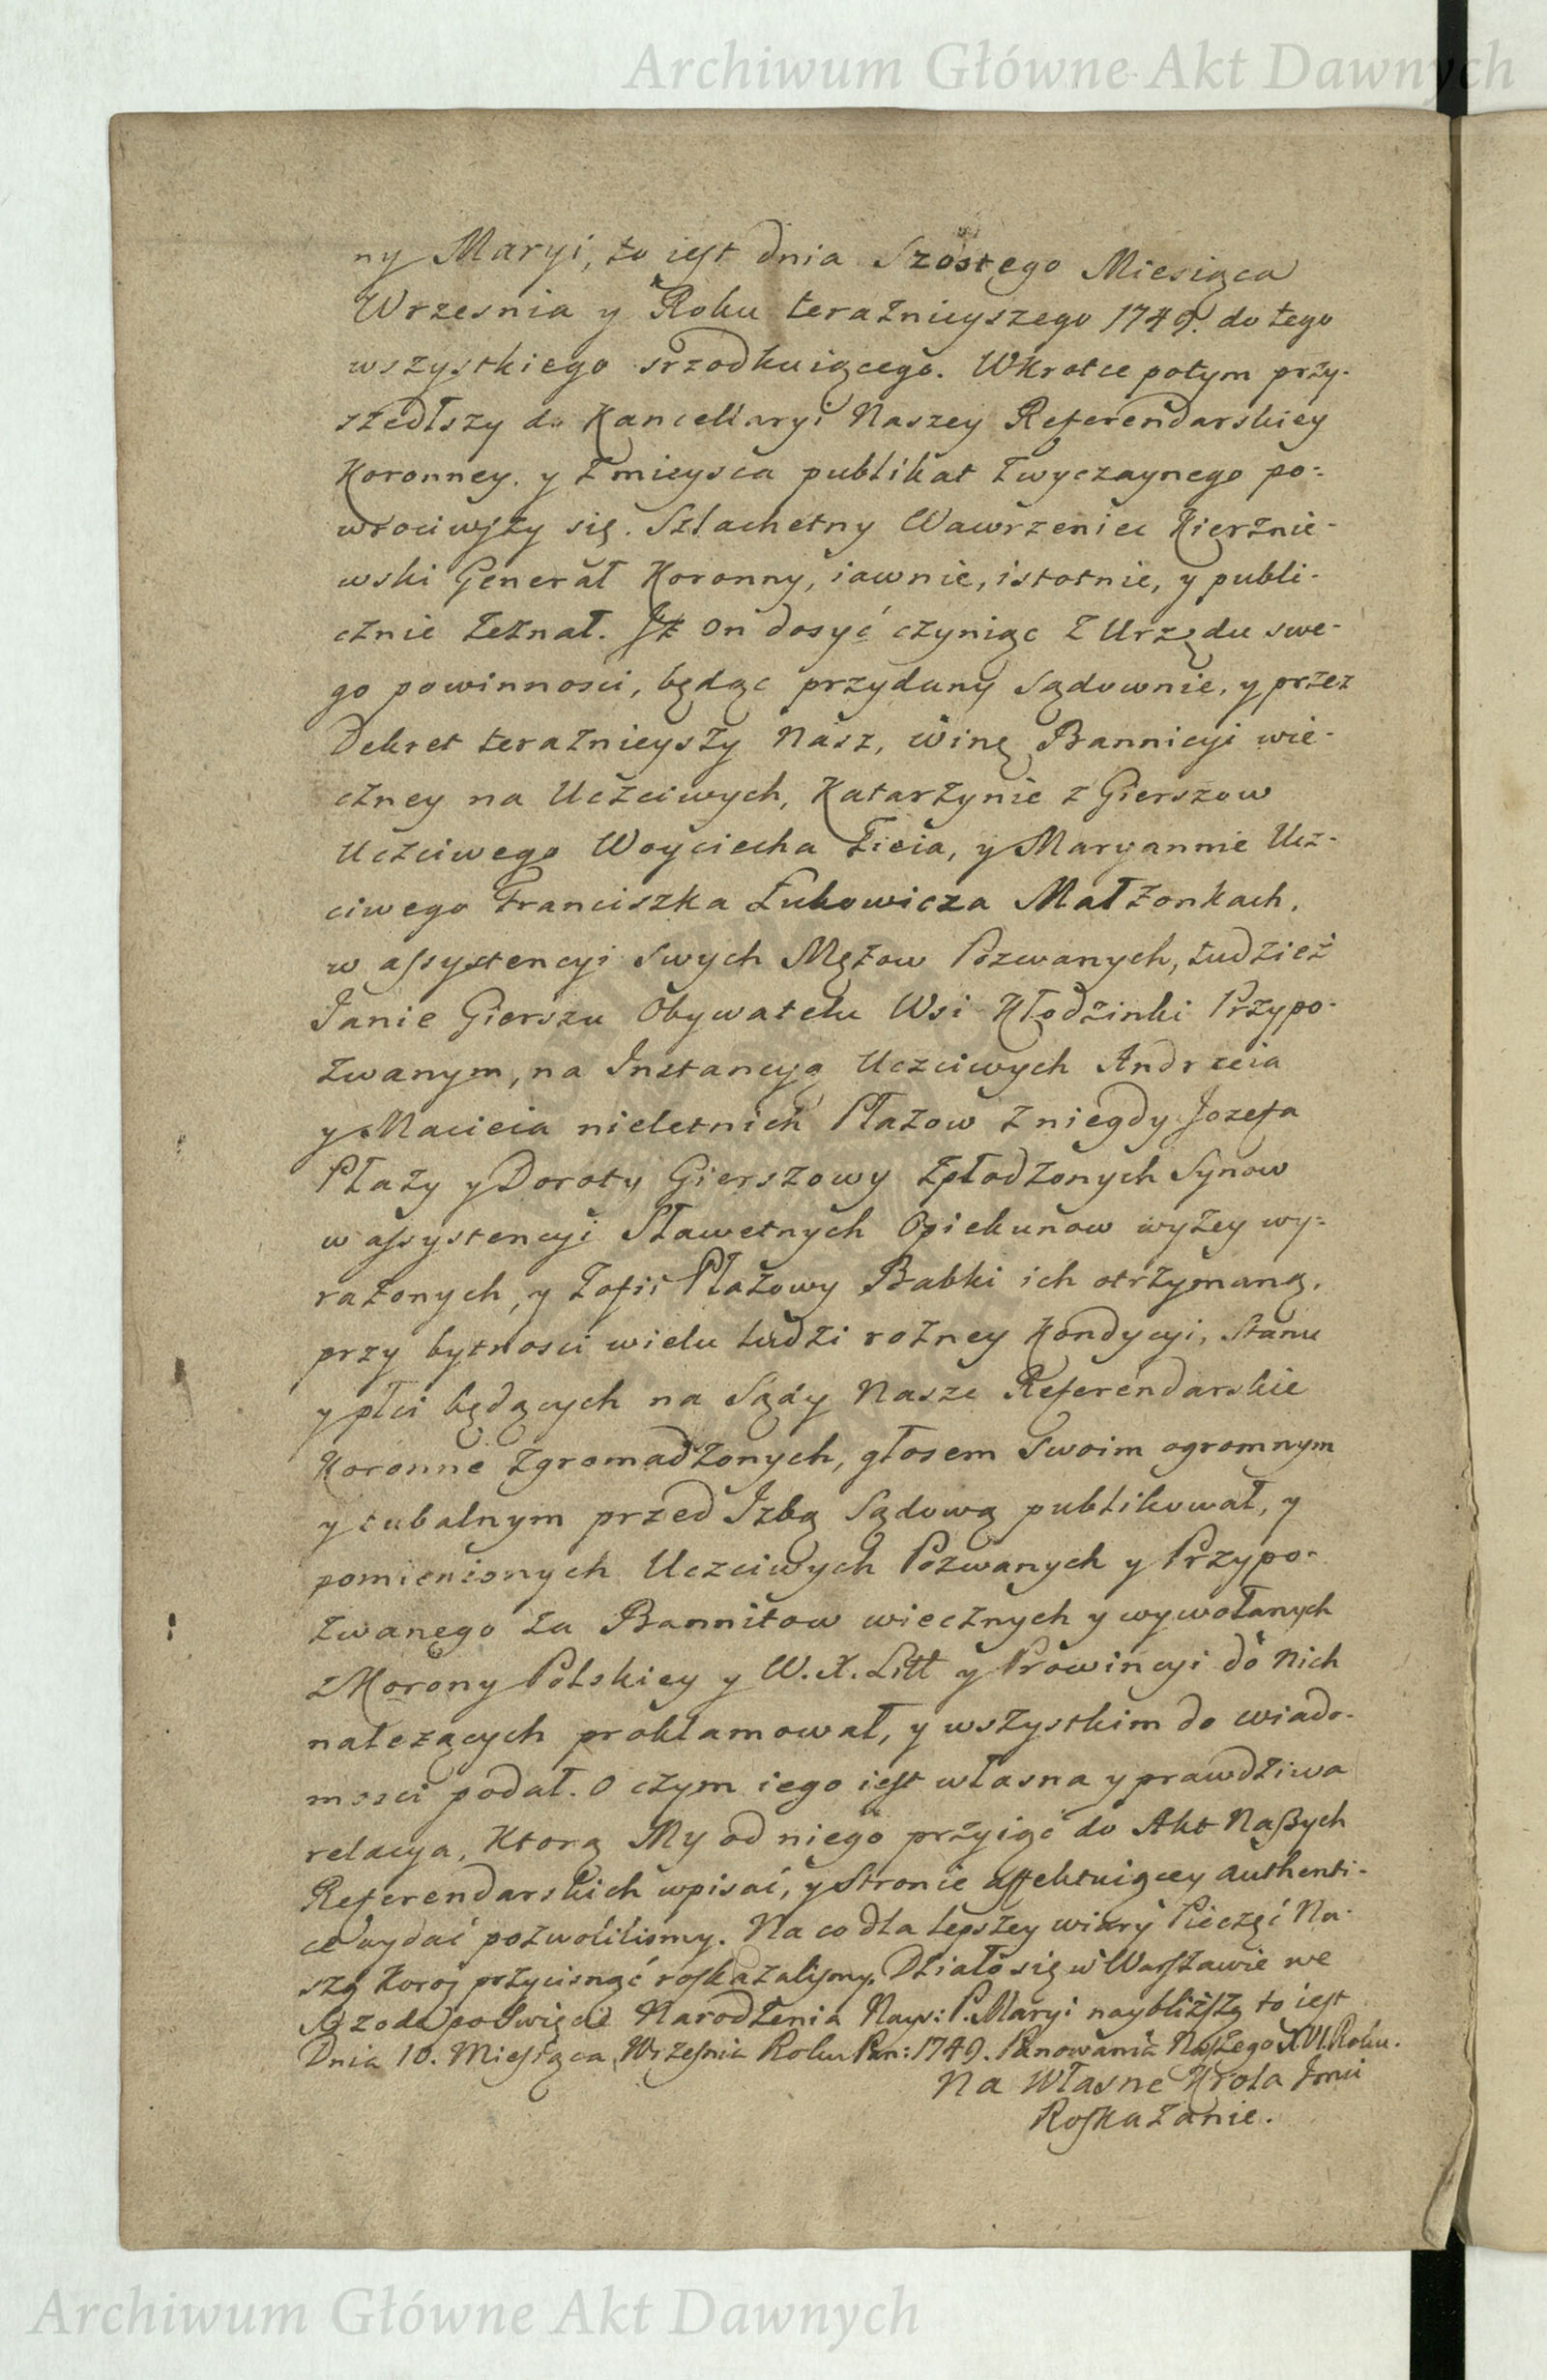 Archiwum Główne Akt Dawnych
ny Maryi, to iest dnia Szostego Miesiąca
Wrzesnia y Roku teraznieyszego 1749. do tego
wszystkiego srzodkuiącego. Wkrotce potym przy-
szedłszy do Kancellaryi Naszey Referendarskiey
Koronney. y z mieysca publikat zwyczaynego po-
wrociwszy się. Szlachetny Wawrzeniec Kierznie-
wski Generał Koronny, iawnie, istotnie, y publi-
cznie zeznał. Jż on dosyć czyniąc z Urzędu swe-
go powinnosci, będąc przydany Sądownie, y przez
Dekret teraznieyszy Nasz, winę Bannicyi wie-
czney na Uczciwych, Katarzynie z Gierszow
Uczciwego Woyciecha Ficia, y Maryannie Ucz-
ciwego Franciszka Łukowicza Małzonkach,
w assystencyi swych Męzow Pozwanych, tudziesz
Janie Gierszu Obywatelu Wsi Kłodzinki Przypo-
zwanym, na Instancyą Uczciwych Andrzeia
y Macieia nieletnich Płazow z niegdy Jozefa
Płazy y Doroty Gierszowy zpłodzonych Synow
w assystencyi Sławetnych Opiekunow wyzey wy-
razonych, y Zofii Płazowy Babki ich otrzymaną,
przy bytnosci wielu ludzi rozney Kondycyi, stanu
y płci będących na Sądy Nasze Referendarskie
Koronne zgromadzonych, głosem swoim ogromnym
y tubalnym przed Izbą Sądową publikował, y
pomienionych Uczciwych Pozwanych y Przypo-
zwanego za Bannitow wiecznych y wywołanych
z Korony Polskiey y W. X. Litt y Prowincyi do nich
nalezących proklamował, y wszystkim do wiado-
mosci podał. O czym iego iest własna y prawdziwa
relacya, Ktorą My od niego przyiąć do Akt Naszych
Referendarskich wpisać, y Stronie affektuiącey authenti-
ce wydać pozwolilismy. Na co dla lepszey wiary Pieczęć Na-
szą Koron przycisnąć roskazalismy. Działo się w Warszawie we
Szrodę po Swięcie Narodzenia Nays: P. Maryi nayblizszą to iest
Dnia 10. Miesiąca Wrzesnia Roku Pan: 1749. Panowania Naszego XVI. Roku.
Na Własne Krola Jmci
Roskazanie.
Archiwum Główne Akt Dawnych